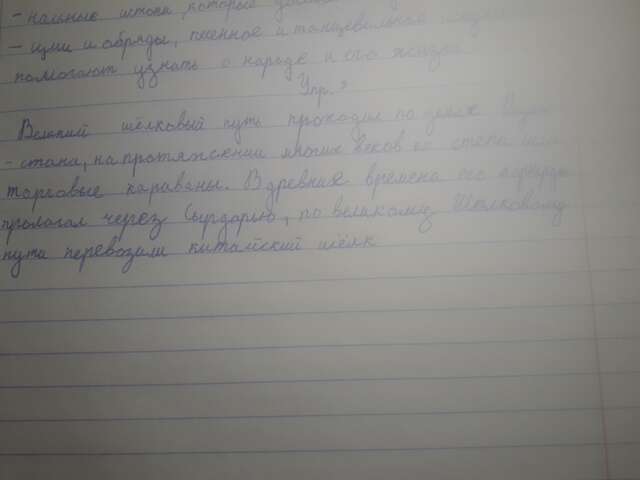 - нальные истоки, которые
- ции и обряды, песенное и танцевальное
помогают узнать о народе и его жизни
Упр. 3
Великий шёлковый путь проходил по земле
- стана, на протяжении многих веков по степи шли
торговые караваны. В древние времена его
пролагал через Сырдарью, по великому Шёлковому
пути перевозили китайский шёлк